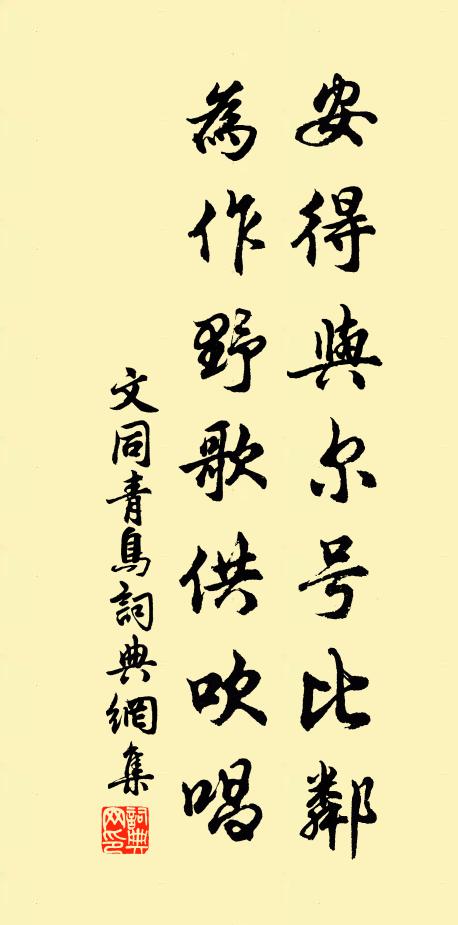 安得與尔号比鄰
為作野歌供吹唱
文同青鳥詞典網集
詞典網印